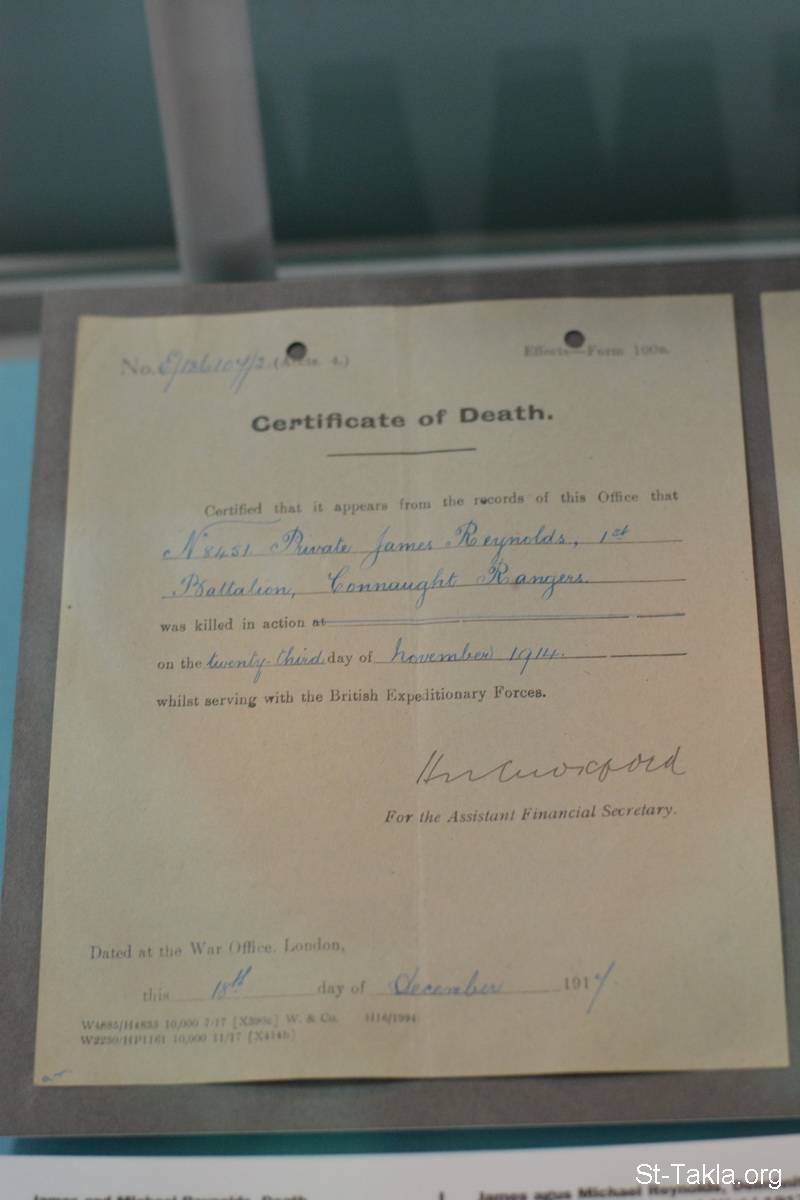 No. E/136107/2. (Accts. 4.)
Effects—Form 100B.
Certificate of Death.
Certified that it appears from the records of this Office that
No 8451 Private James Reynolds, 1st
Battalion, Connaught Rangers.
was killed in action at
on the twenty-third day of November 1914.
whilst serving with the British Expeditionary Forces.
For the Assistant Financial Secretary.
Dated at the War Office, London,
this 18th day of December 1917
W4885/H4833 10,000 7/17 [X390c] W. & Co. H16/1994
W2250/HP1161 10,000 11/17 [X414b]
James and Michael Reynolds, Death
James agus Michael Reynolds,
St-Takla.org